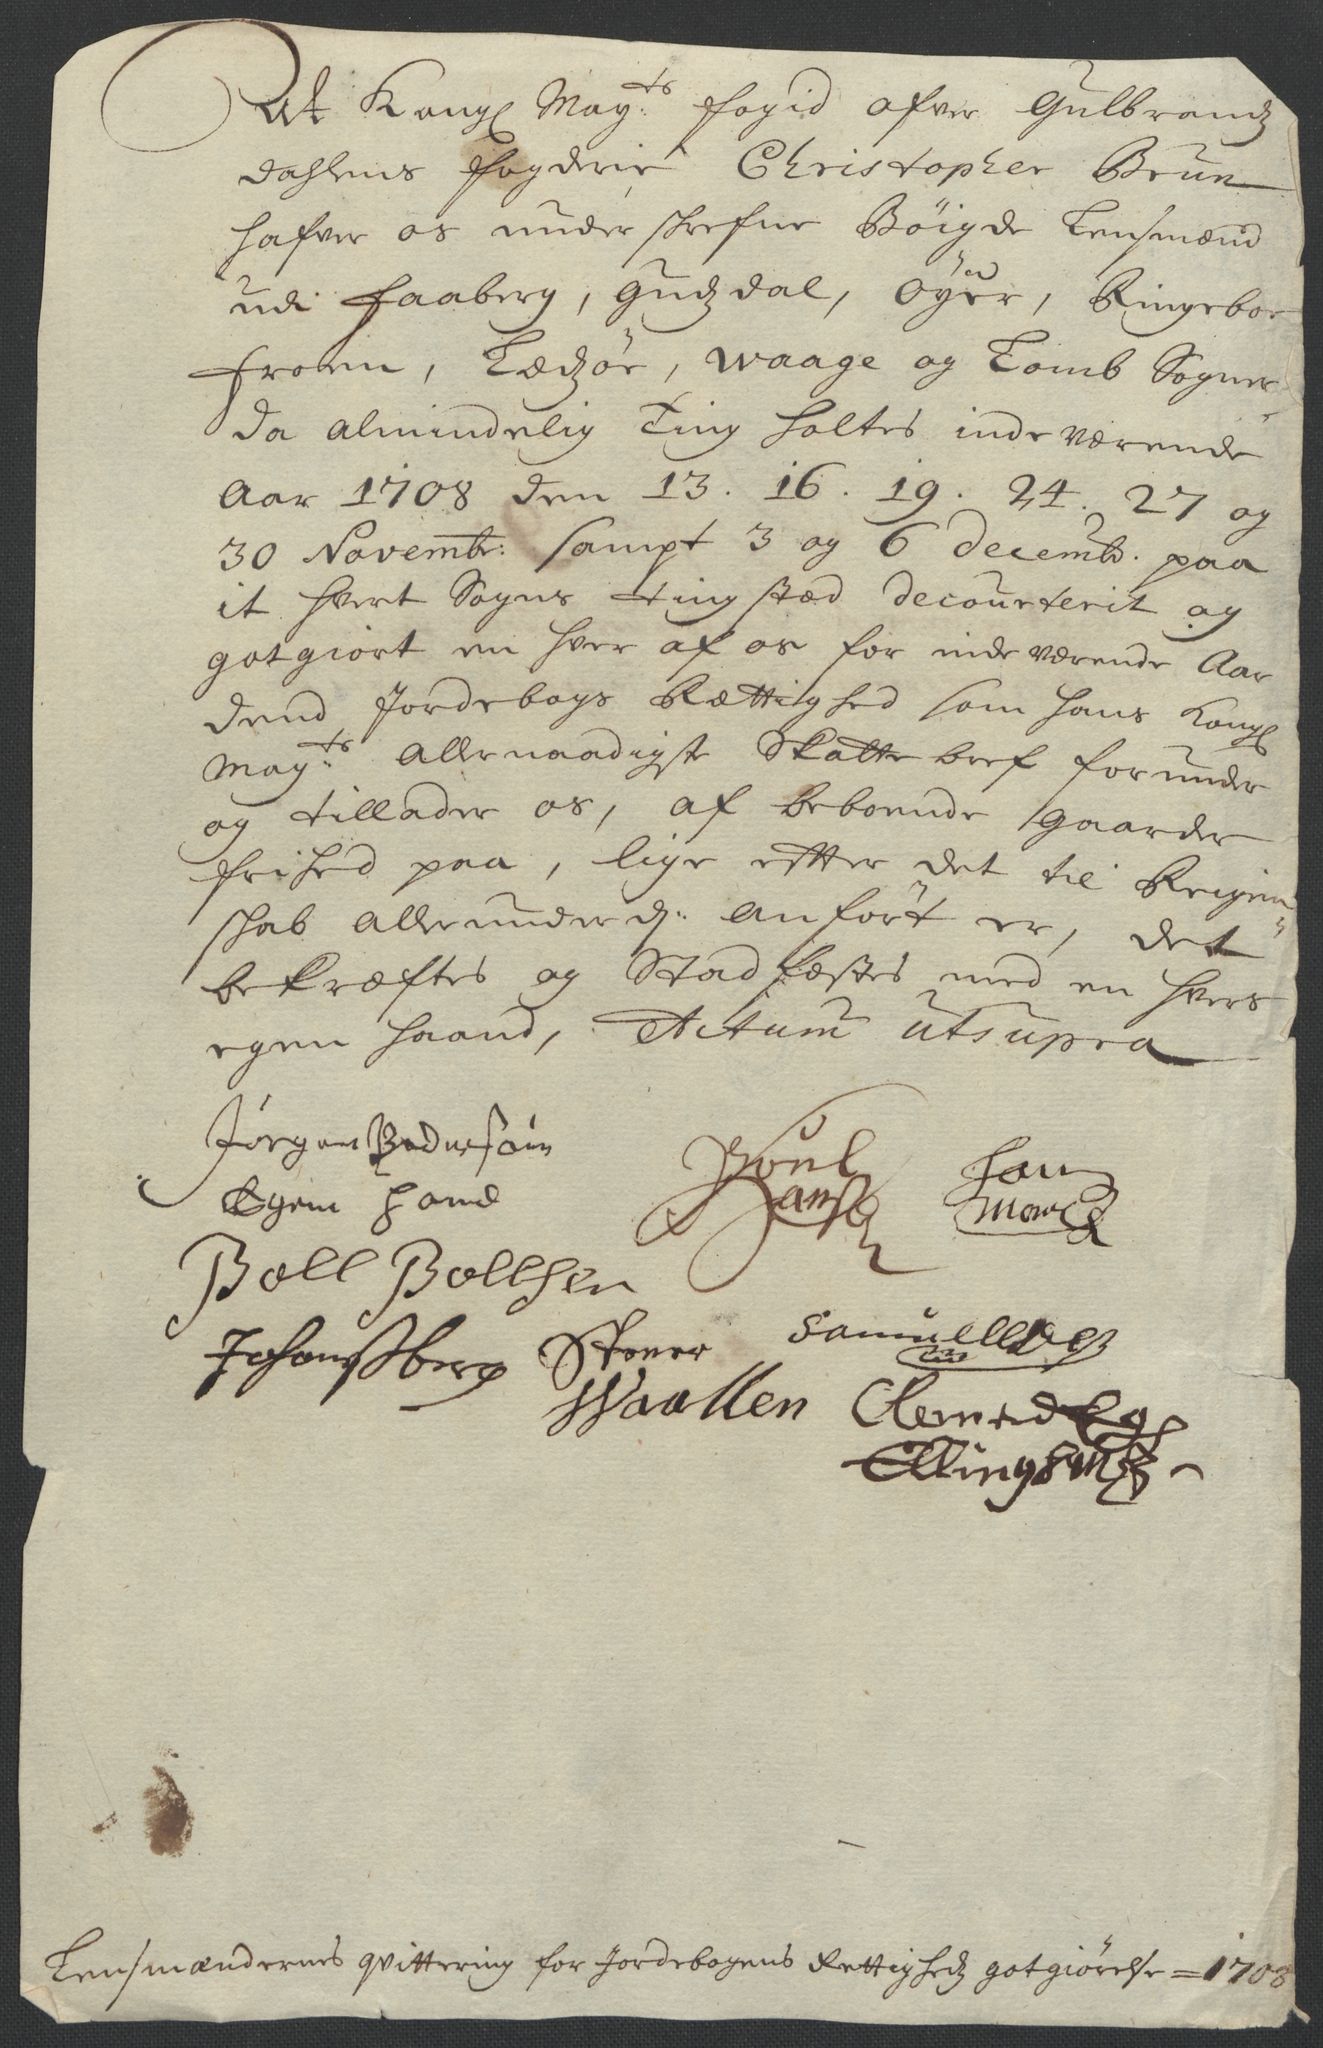 At Kongl May:ts fogid ofver Gulbrandz
dahlens fogderie Christopher Brun
hafver os under schrefne Böigde Lensmænd
udi Faaberg, Gudzdal, Öyer, Ringeboe
Froen, Lædzöe, Waage og Lomb Sogner
da almindelig Ting holtes inde værende
Aar 1708 den 13. 16. 19. 24. 27 og
30 Novembr: sampt 3 og 6 decemb. paa
it hvert Sogns tingstæd decourterit og
gotgiort en hver af os for inde værende Aar
dend Jordebogs Rættighed som hans Kongl
May:ts allernaadigste Skatte bref forunder
og tillader os, af beboende gaarder
frihed paa, lige efter det til Regen
schab allerunderd: anført er, det
bekræftes og Stadfæstes med en hvers
egen haand, Actum ut supra
Jörgen Pedersøn
Egen Hand
Poul
Hansen
Hans
Boll Bollsen
Johans Berg
Stener
Waallen
Samuell
Clemend
Ellingsøn
Lensmændernes qvittering for Jordebogens Rettighedz godtgiørelse = 1708